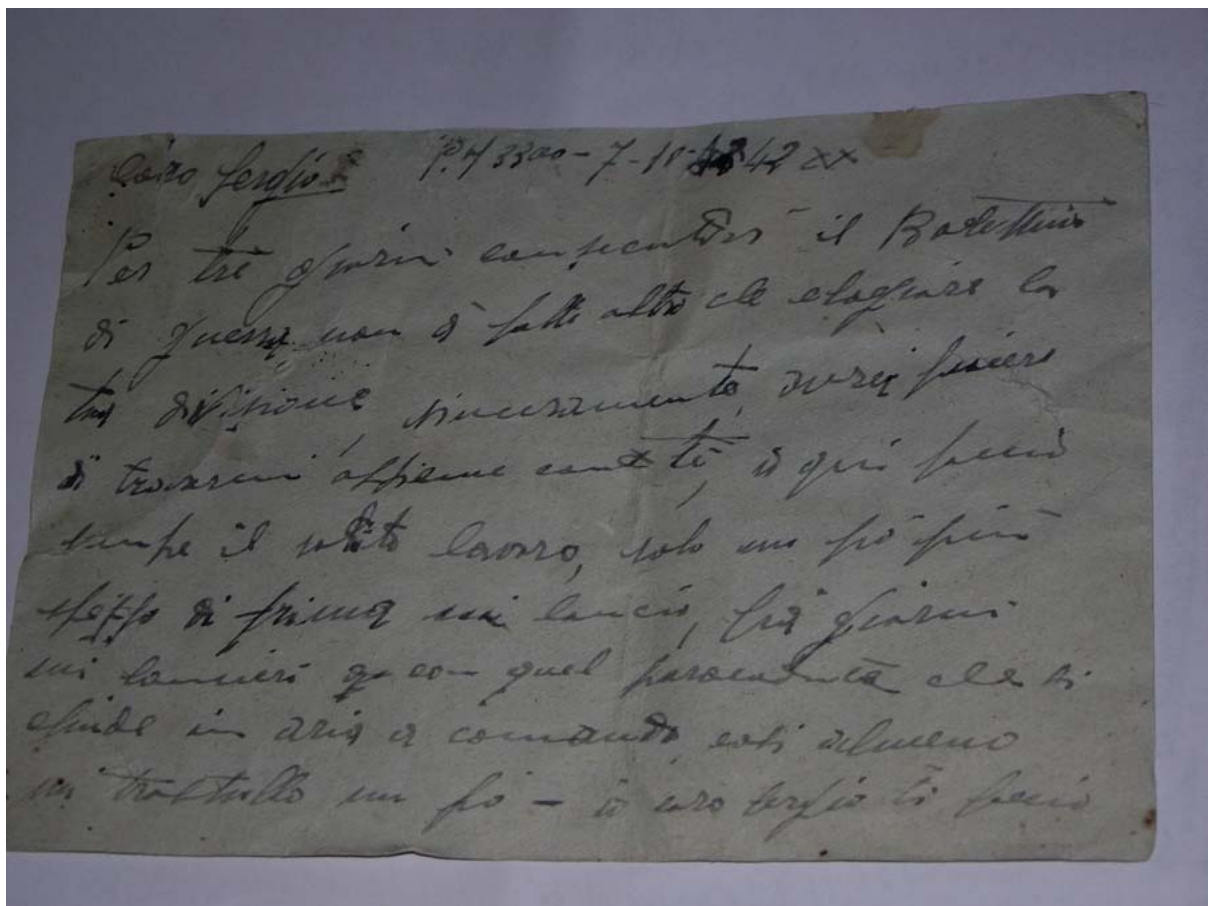 Caro Sergio P.M 3300 - 7-10- 42 XX
Per tre giorni consecutivi il Bollettino
di guerra non à fatto altro che elogiare la
tua divisione sinceramente avrei piacere
di trovarmi assieme con te, io qui faccio
sempre il solito lavoro, solo un pò più
spesso di prima mi lancio, frà giorni
mi lancierò con quel paracadute che si
chiude in aria a comando così almeno
mi trastullo un po - io caro Sergio ti faccio